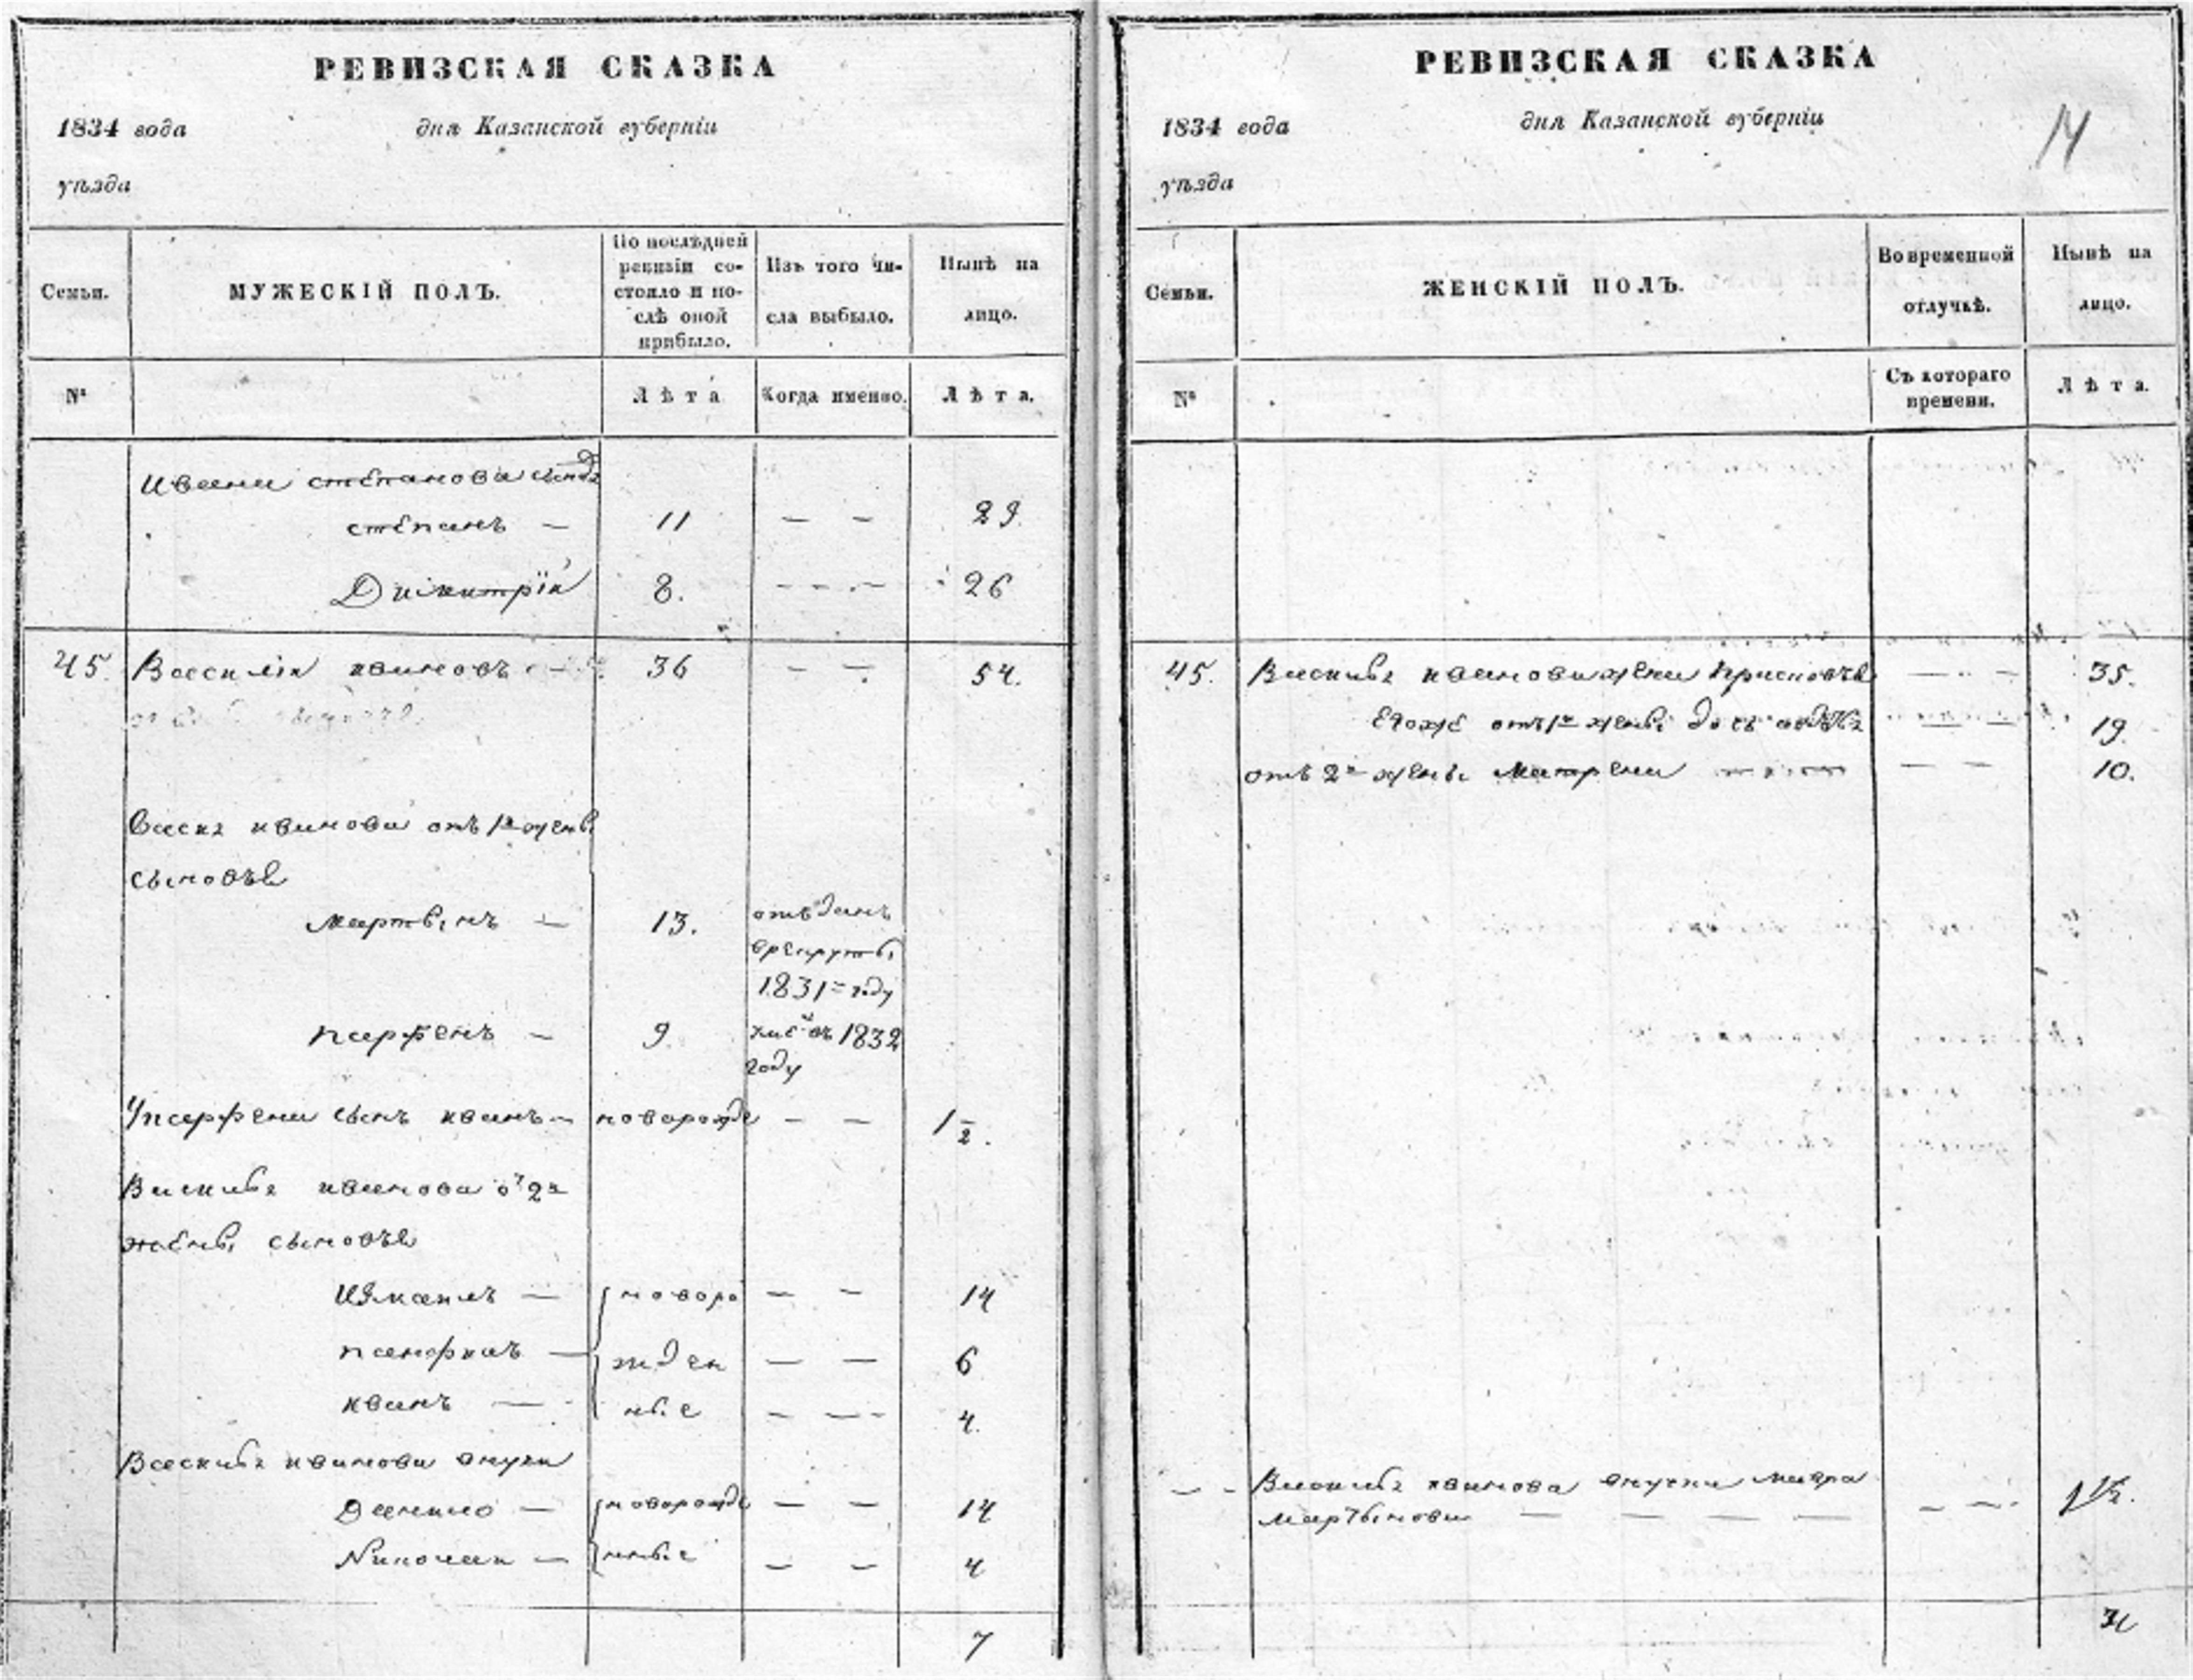 РЕВИЗСКАЯ СКАЗКА
1834 года дня Казанской губерніи
уѣзда
Семьи. МУЖЕСКІЙ ПОЛЪ. По послѣдней ревизіи состояло и послѣ оной прибыло. Изъ того числа выбыло. Нынѣ на лицо.
№ Лѣта Когда именно. Лѣта.
Ивана степанова
степанъ — 11 — — 29
Димитрій 8. — — 26
45. Василій ивановъ 36 — — 54.
иванова отъ 1й жены
сыновья
мартынъ — 13. отданъ
врекруты
1831го году
парфенъ — 9. въ 1832
году
Упарфена сынъ иванъ — новорожде — — 1 1/2.
Василья иванова 2й
жены сыновья
Измаилъ — новоро — — 14
панфилъ — жден — — 6
иванъ — ные — — 4.
Василья иванова внуки
Данило — новорожде — — 14
Николай — нные — — 4
7
РЕВИЗСКАЯ СКАЗКА
1834 года дня Казанской губерніи 14
уѣзда
Семьи. ЖЕНСКІЙ ПОЛЪ. Во временной отлучкѣ. Нынѣ на лицо.
№ Съ котораго времени. Лѣта.
45. Василья иванова жена — — 35.
Егоже отъ 1й жены — — 19.
отъ 2й жены матрена — — 10.
— — Василья иванова внучка мавра
мартынова — — — — — — 1 1/2.